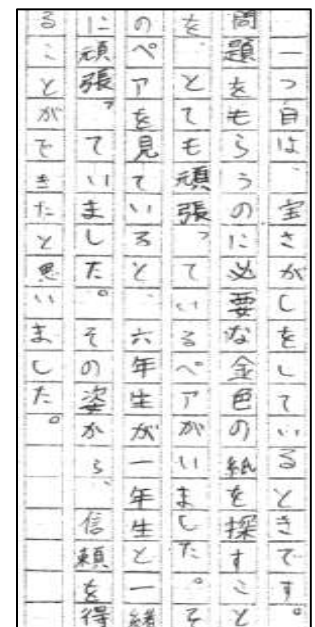 一つ目は、宝さがしをしているときです。
問題をもらうのに必要な金色の紙を探すこと
を、とても頑張っているペアがいました。そ
のペアを見ていると、六年生が一年生と一緒
に頑張っていました。その姿から、信頼を得
ることができたと思いました。